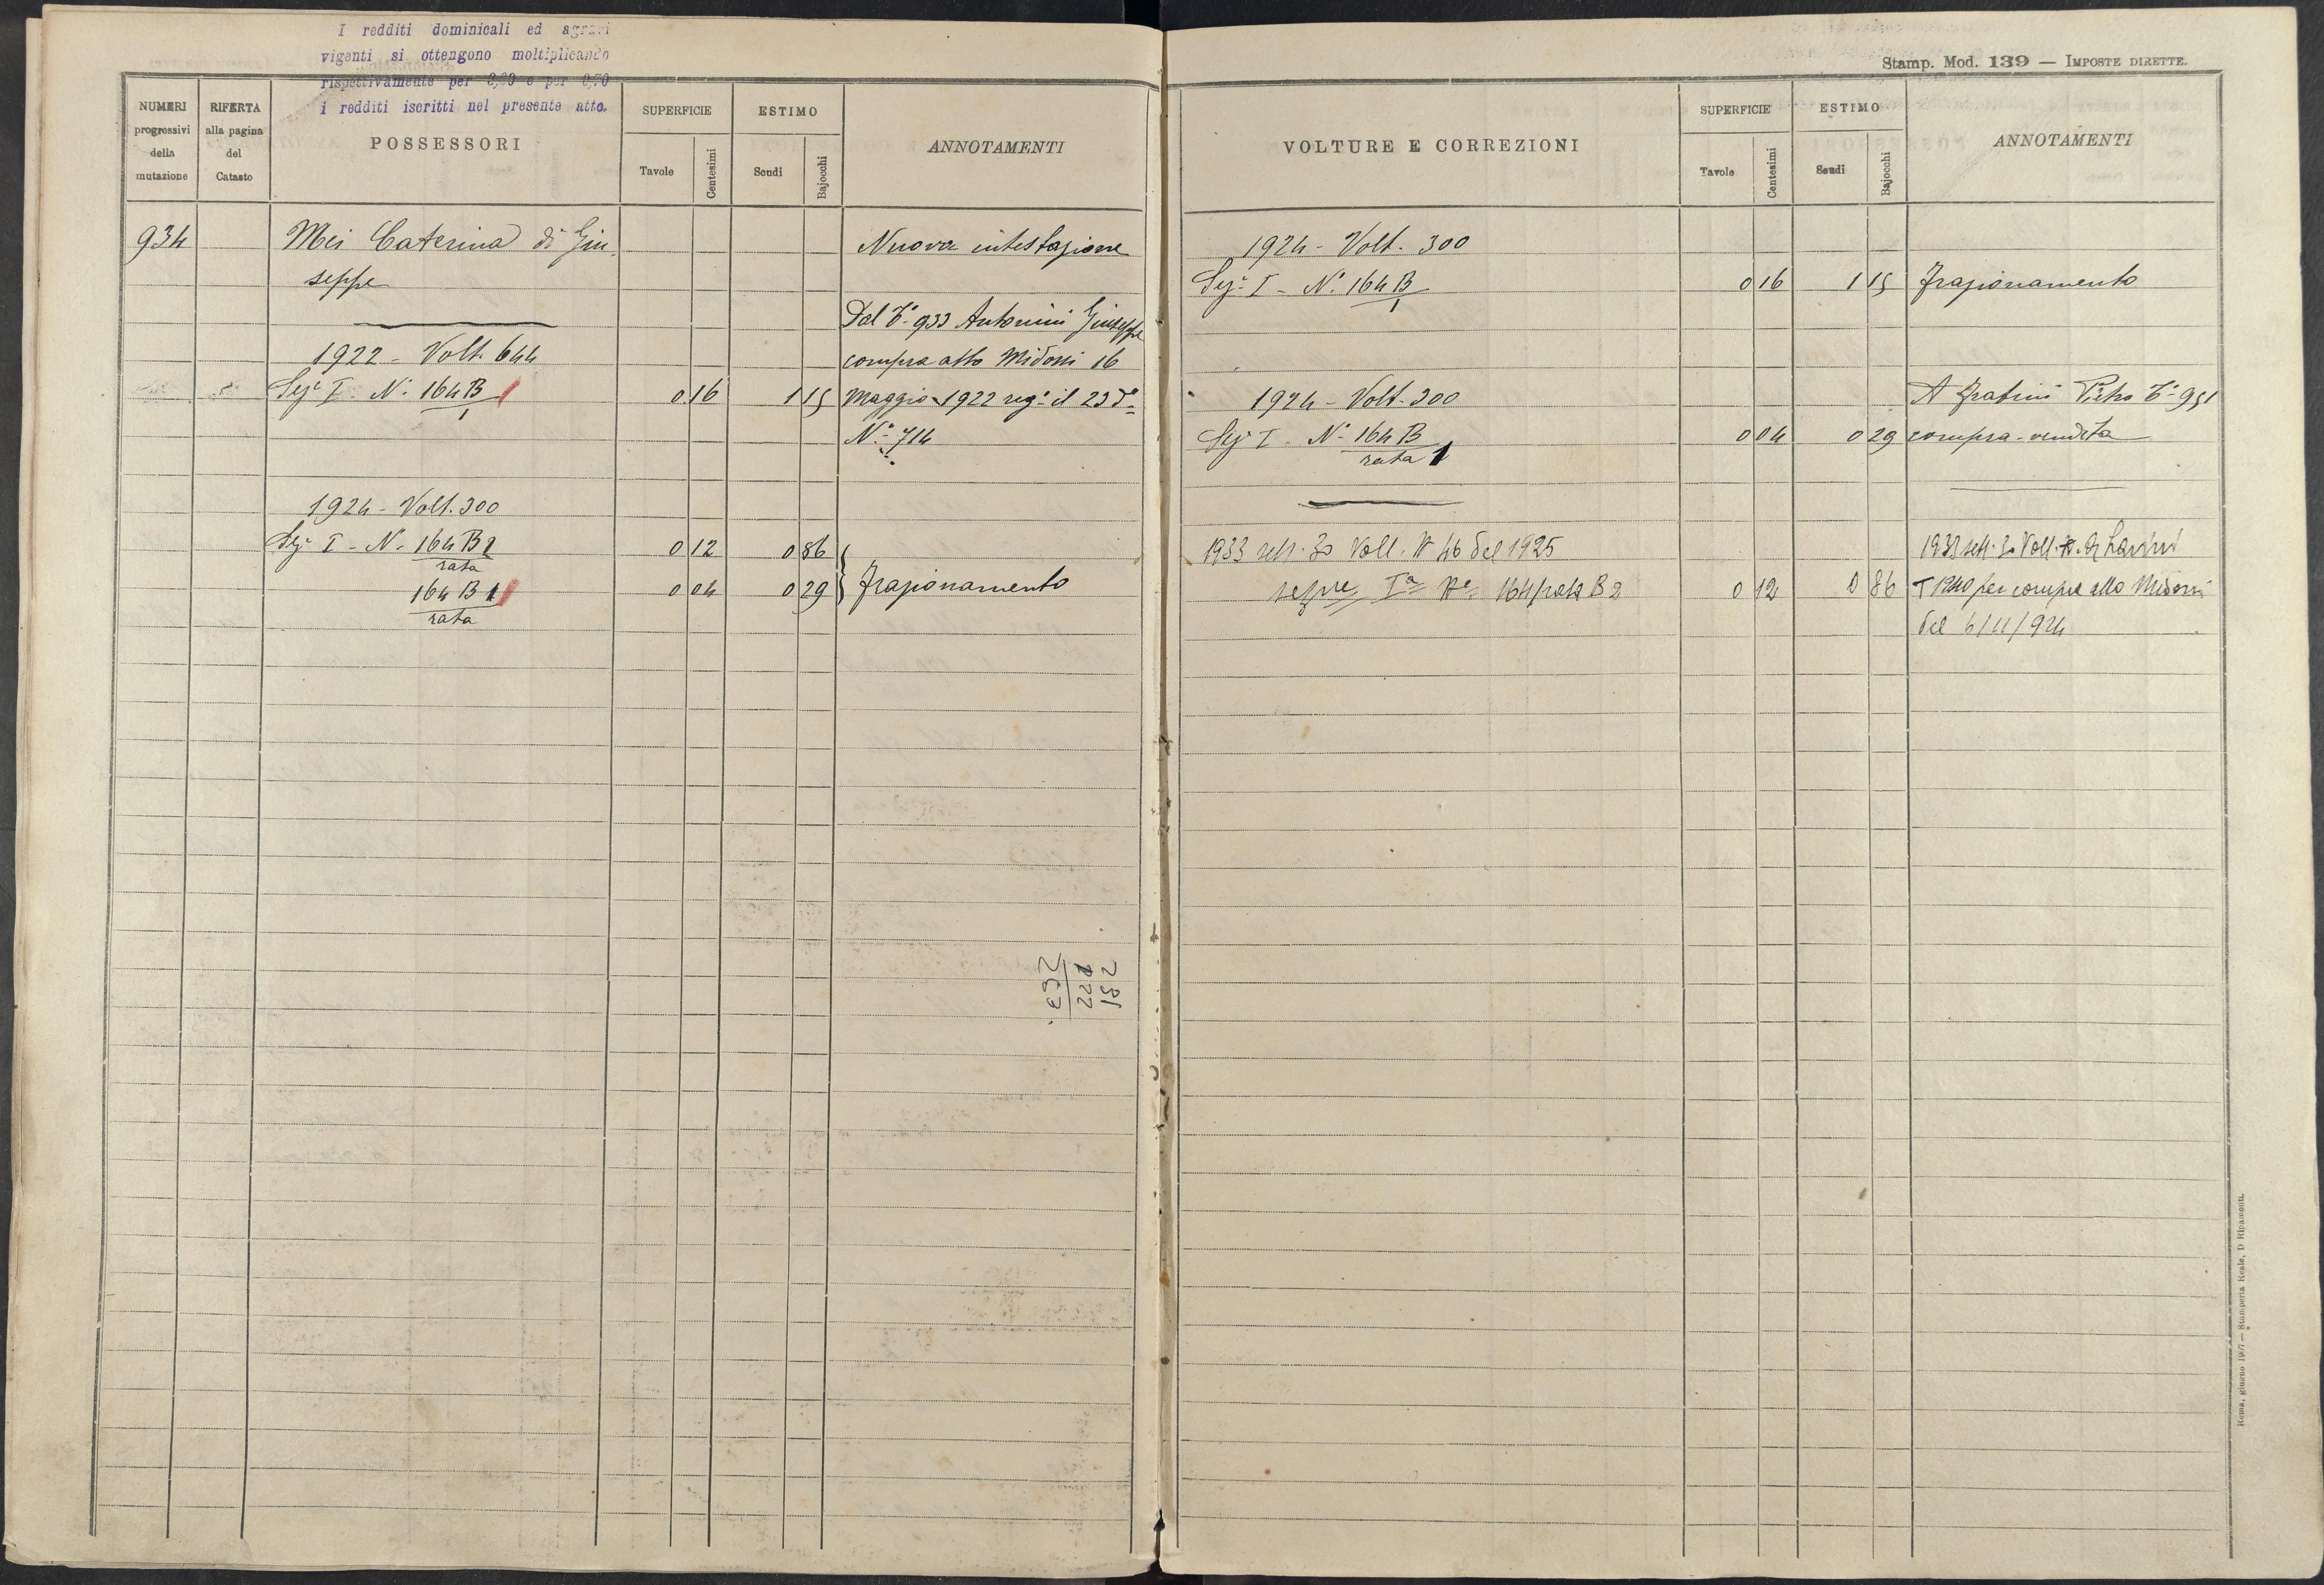 I redditi dominicali ed agrari
vigenti si ottengono moltiplicando
rispettivamente per e per
i redditi iscritti nel presente atto.
NUMERI progressivi della mutazione
RIFERTA alla pagina del Catasto
POSSESSORI
SUPERFICIE
Tavole
Centesimi
ESTIMO
Scudi
Bajocchi
ANNOTAMENTI
934 Mei Caterina di Giu Nuova intestazione
seppe
Dal T° 933 Antonini Giuseppe
1922 - Volt. 644 compra atto Midossi 16
Sez. I N. 164 B 0 16 1 15 Maggio 1922 reg° il 23 d°
1 N° 714
1924 - Volt. 300
Sez. I - N. 164 B 2 0 12 0 86
rata
164 B 1 0 04 0 29 Frazionamento
rata
231
222
263.
Stamp. Mod. 139 — IMPOSTE DIRETTE.
VOLTURE E CORREZIONI
SUPERFICIE
Tavole
Centesimi
ESTIMO
Scudi
Bajocchi
ANNOTAMENTI
1924 - Volt. 300
Sez. I - N. 164 B 0 16 1 15 Frazionamento
1
1924 - Volt. 300 A Fratini Pietro T° 951
Sez. I - N. 164 B 0 04 0 29 compra-vendita
rata 1
1933 sett. 30 Volt. N 46 del 1925 1933 sett. 30 Volt.
Sezne Iª Nº 164/rata B 2 0 12 0 86 T 1240 per compra atto Midossi
del 6/11/924
Roma, giugno — Stamperia Reale, D. Ripamonti.